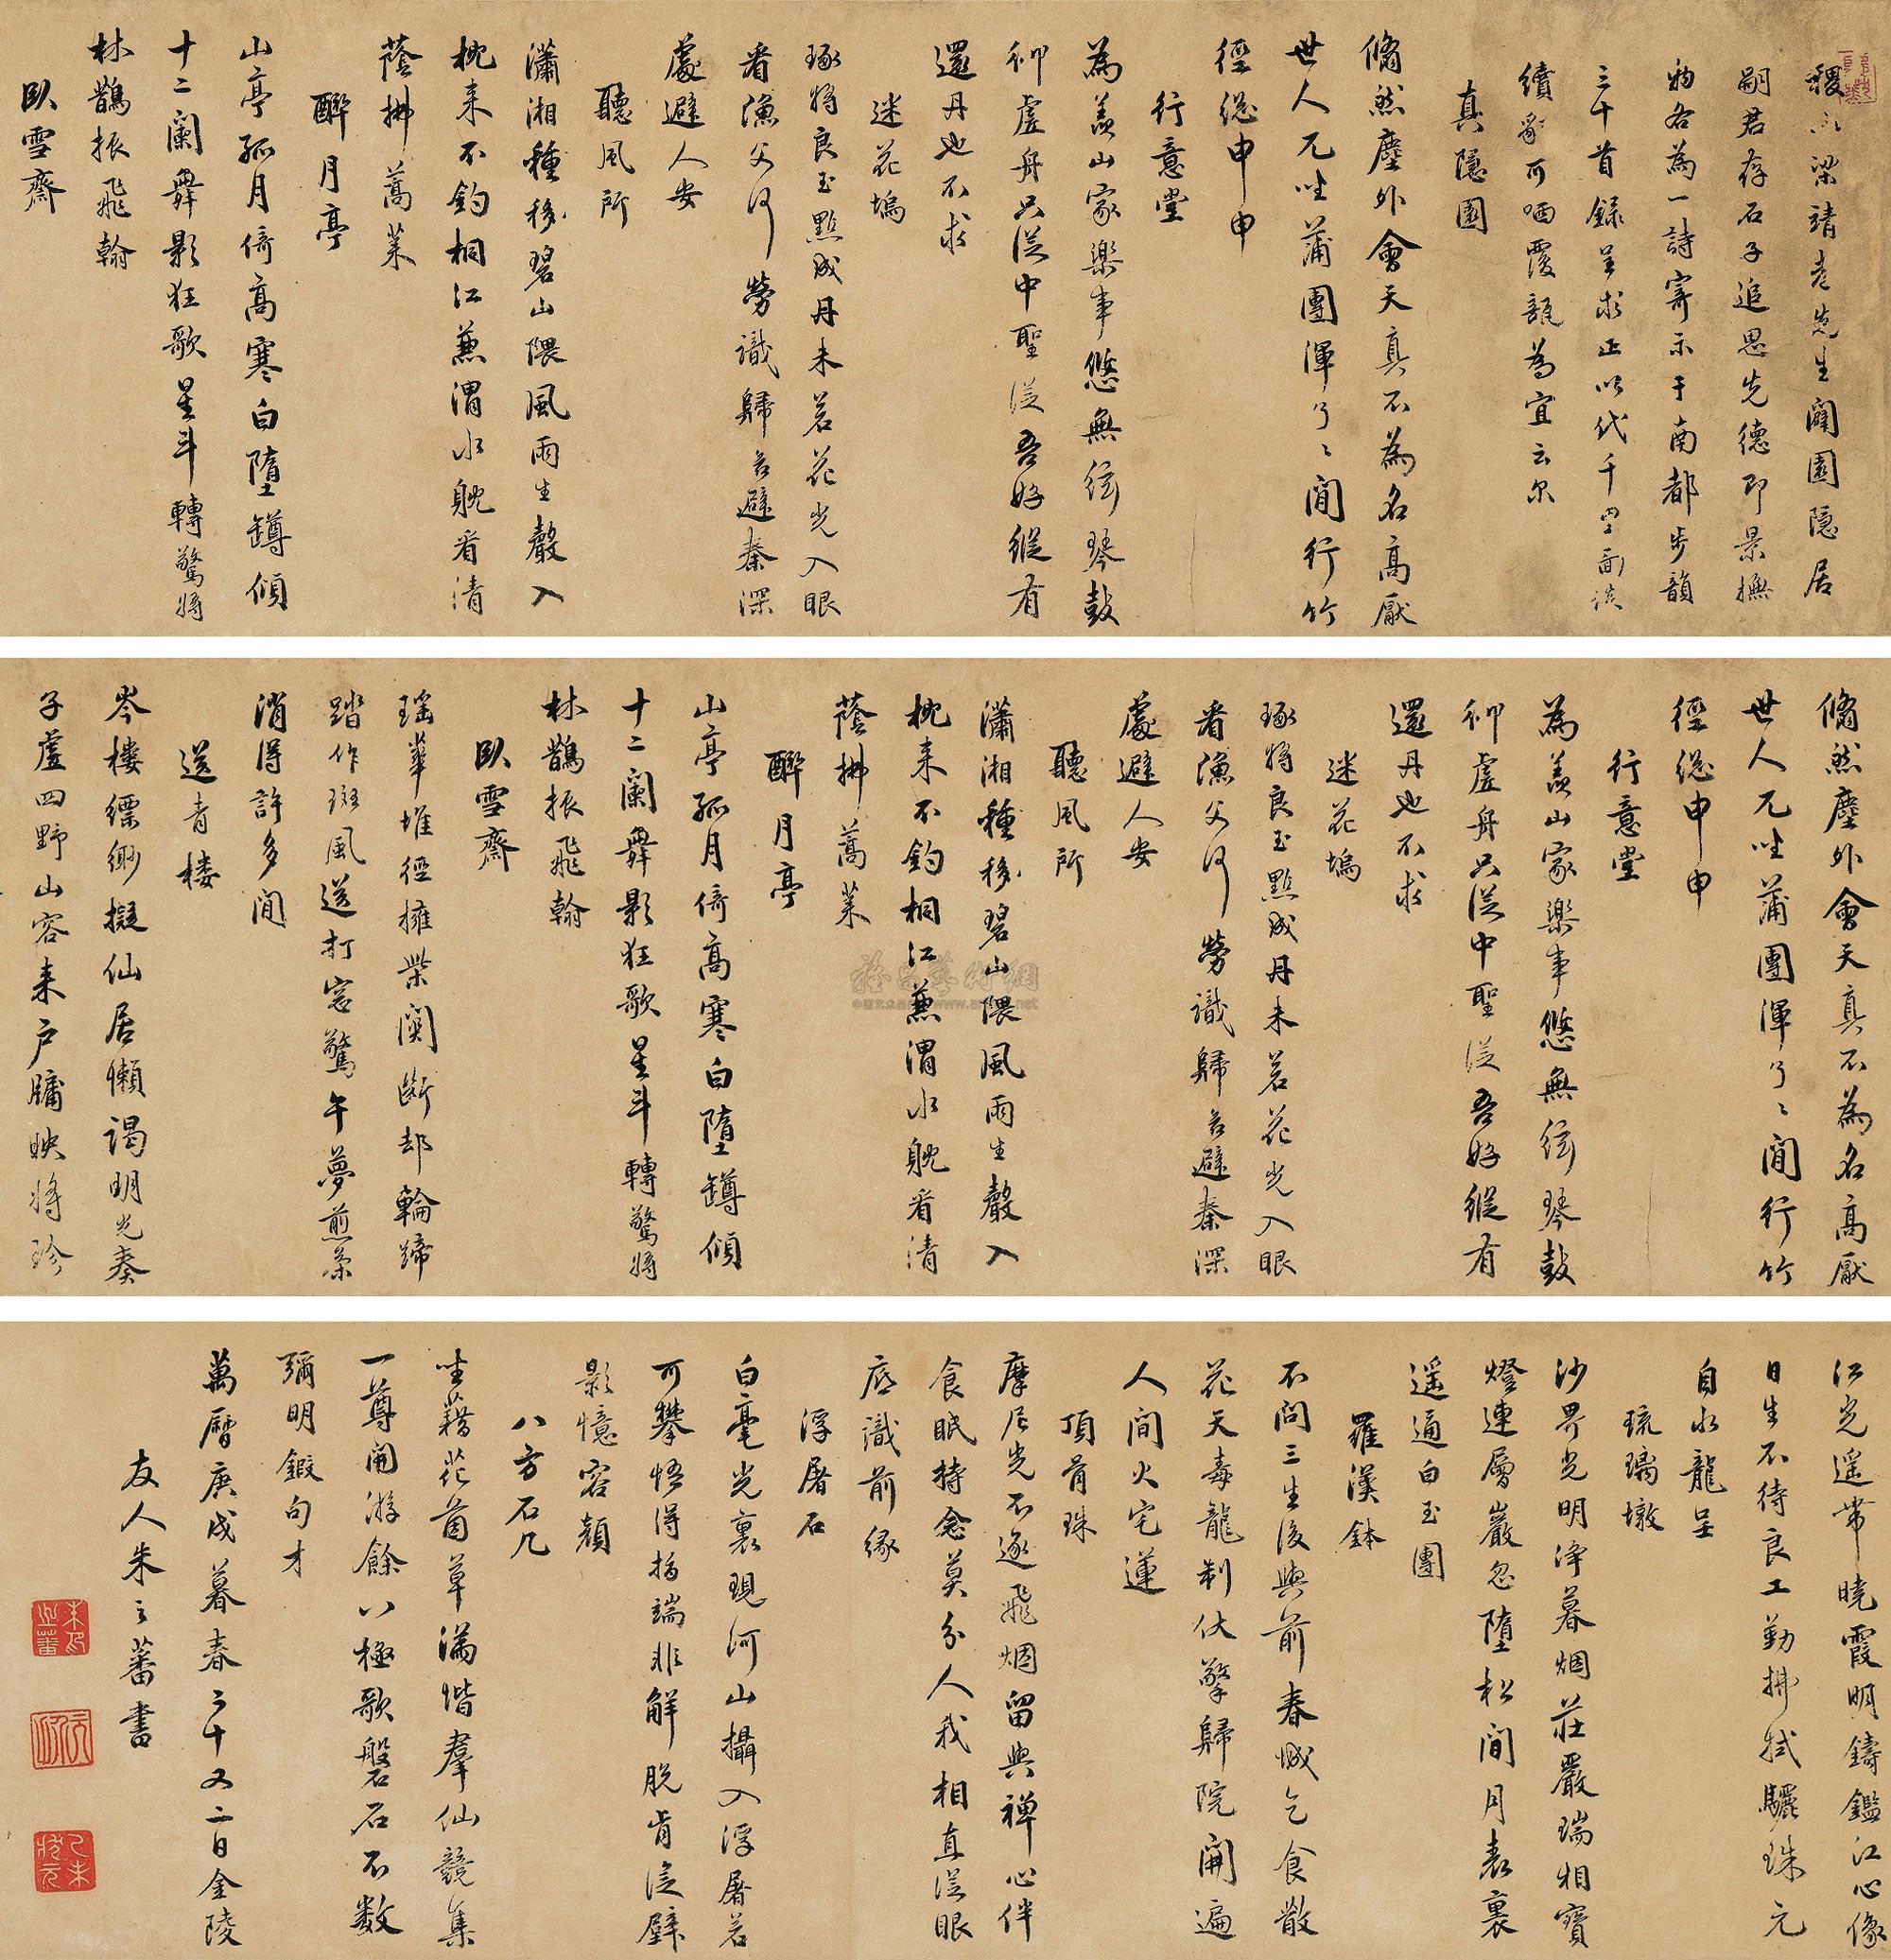 稷山梁靖老先生闢園隱居
嗣君存石子追思先德即景撫
物各為一詩寄示于南都步韻
三十首錄呈求正以代千里面談
續貂可哂覆瓿為宜云尔
真隱園
翛然塵外會天真不為名高厭
世人兀坐蒲團渾了了閒行竹
徑總申申
行意堂
為羨山家樂事悠無絃琴鼓
仰虛舟只從中聖從吾好縱有
還丹也不求
迷花塢
琢將良玉點成丹未若花光入眼
看漁父何勞識歸若避秦深
處避人安
聽風所
瀟湘種移碧山隈風雨生聲入
枕來不釣桐江兼渭水貌看清
蔭拂蒿萊
醉月亭
山亭孤月倚高寒白墮罇傾
十二闌舞影狂歌星斗轉驚將
林鵲振飛翰
臥雪齋
翛然塵外會天真不為名高厭
世人兀坐蒲團渾了了閒行竹
徑總申申
行意堂
為羨山家樂事悠無絃琴鼓
仰虛舟只從中聖從吾好縱有
還丹也不求
迷花塢
琢將良玉點成丹未若花光入眼
看漁父何勞識歸若避秦深
處避人安
聽風所
瀟湘種移碧山隈風雨生聲入
枕來不釣桐江兼渭水貌看清
蔭拂蒿萊
醉月亭
山亭孤月倚高寒白墮罇傾
十二闌舞影狂歌星斗轉驚將
林鵲振飛翰
臥雪齋
瑶華堆徑擁柴關斷却輪蹄
踏作斑風送打窓驚午夢煎茶
消得許多閒
送青樓
岑樓縹緲擬仙居懶謁明光奏
子虛四野山容来戶牖映將珍
江光遥帶曉霞明鑄鑑江心像
日生不待良工勤拂拭驪珠元
自水龍呈
琉璃墩
沙界光明淨暮烟莊嚴瑞相寶
燈連層巖忽墮松間月表裏
遥通白玉團
羅漢鉢
不問三生後與前春城乞食散
花天毒龍制伏擎歸院開遍
人間火宅蓮
頂前珠
摩尼光不逐飛烟留與禅心伴
食眠持念莫分人我相直從眼
底識前緣
浮屠石
白毫光裏現河山攝入浮屠若
可攀悟得指端非解脫肯從壁
影憶容顏
八方石几
坐藉花茵草滿堦羣仙競集
一尊開游餘八極歌磐石不數
彌明鍛句才
萬曆庚戌暮春三十又二日金陵
友人朱之蕃書
朱印之蕃
元介
乙未狀元